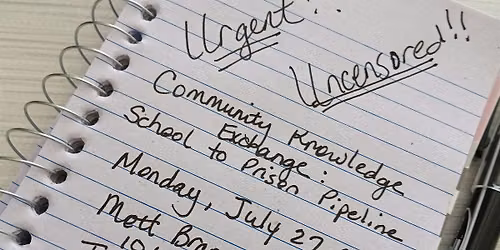 Urgent!!
Uncensored!!
Community Knowledge
Exchange:
School to Prison Pipeline
Monday, July 27
Mott